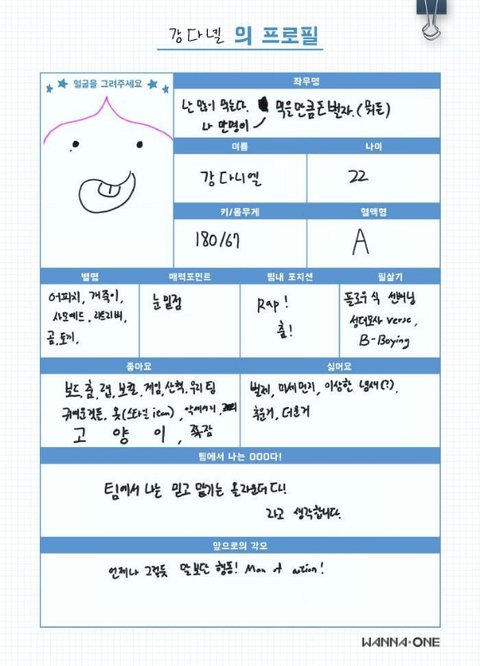 강다넬 의 프로필
얼굴을 그려주세요
좌우명
난 많이 먹는다. 먹을만큼 돈 벌자. (뭐든)
나 만명이
이름
나이
강다니엘
22
키/몸무게
혈액형
180/67
A
별명
매력포인트
팀내 포지션
필살기
어피치, 개죽이,
사모예드, 래트리버,
곰, 토끼,
눈밑점
Rap!
춤!
플로우식 선배님
성대모사 verse,
B-Boying
좋아요
싫어요
보드, 춤, 랩, 보컬, 게임, 산책, 우리팀
귀여운것들, 옷(스타일 icon), 악세서리,
고양이, 육감
벌레, 미세먼지, 이상한 냄새(?),
추운거, 더운거
팀에서 나는 OOO다!
팀에서 나는 믿고 맡기는 올라운더다!
라고 생각합니다.
앞으로의 각오
언제나 그렇듯 말보단 행동! Man of action!
WANNA·ONE